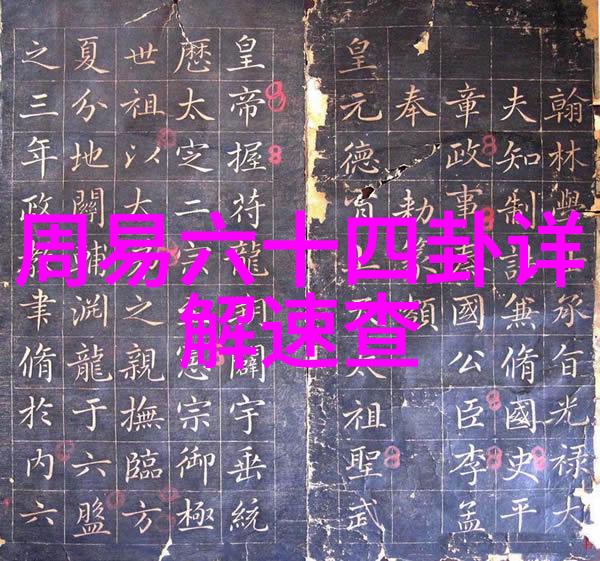 周易六十四卦详
解速查
翰林學承旨光祿大
夫知制誥兼脩國史平
章政事國公臣李孟
奉勑
皇元德太祖聖武
皇帝握符龍闢宇垂統
歴太定二宗憲宗御極
世祖以大之親撫臨方
夏分地關淵龍于六盤
之三年政聿脩於內六